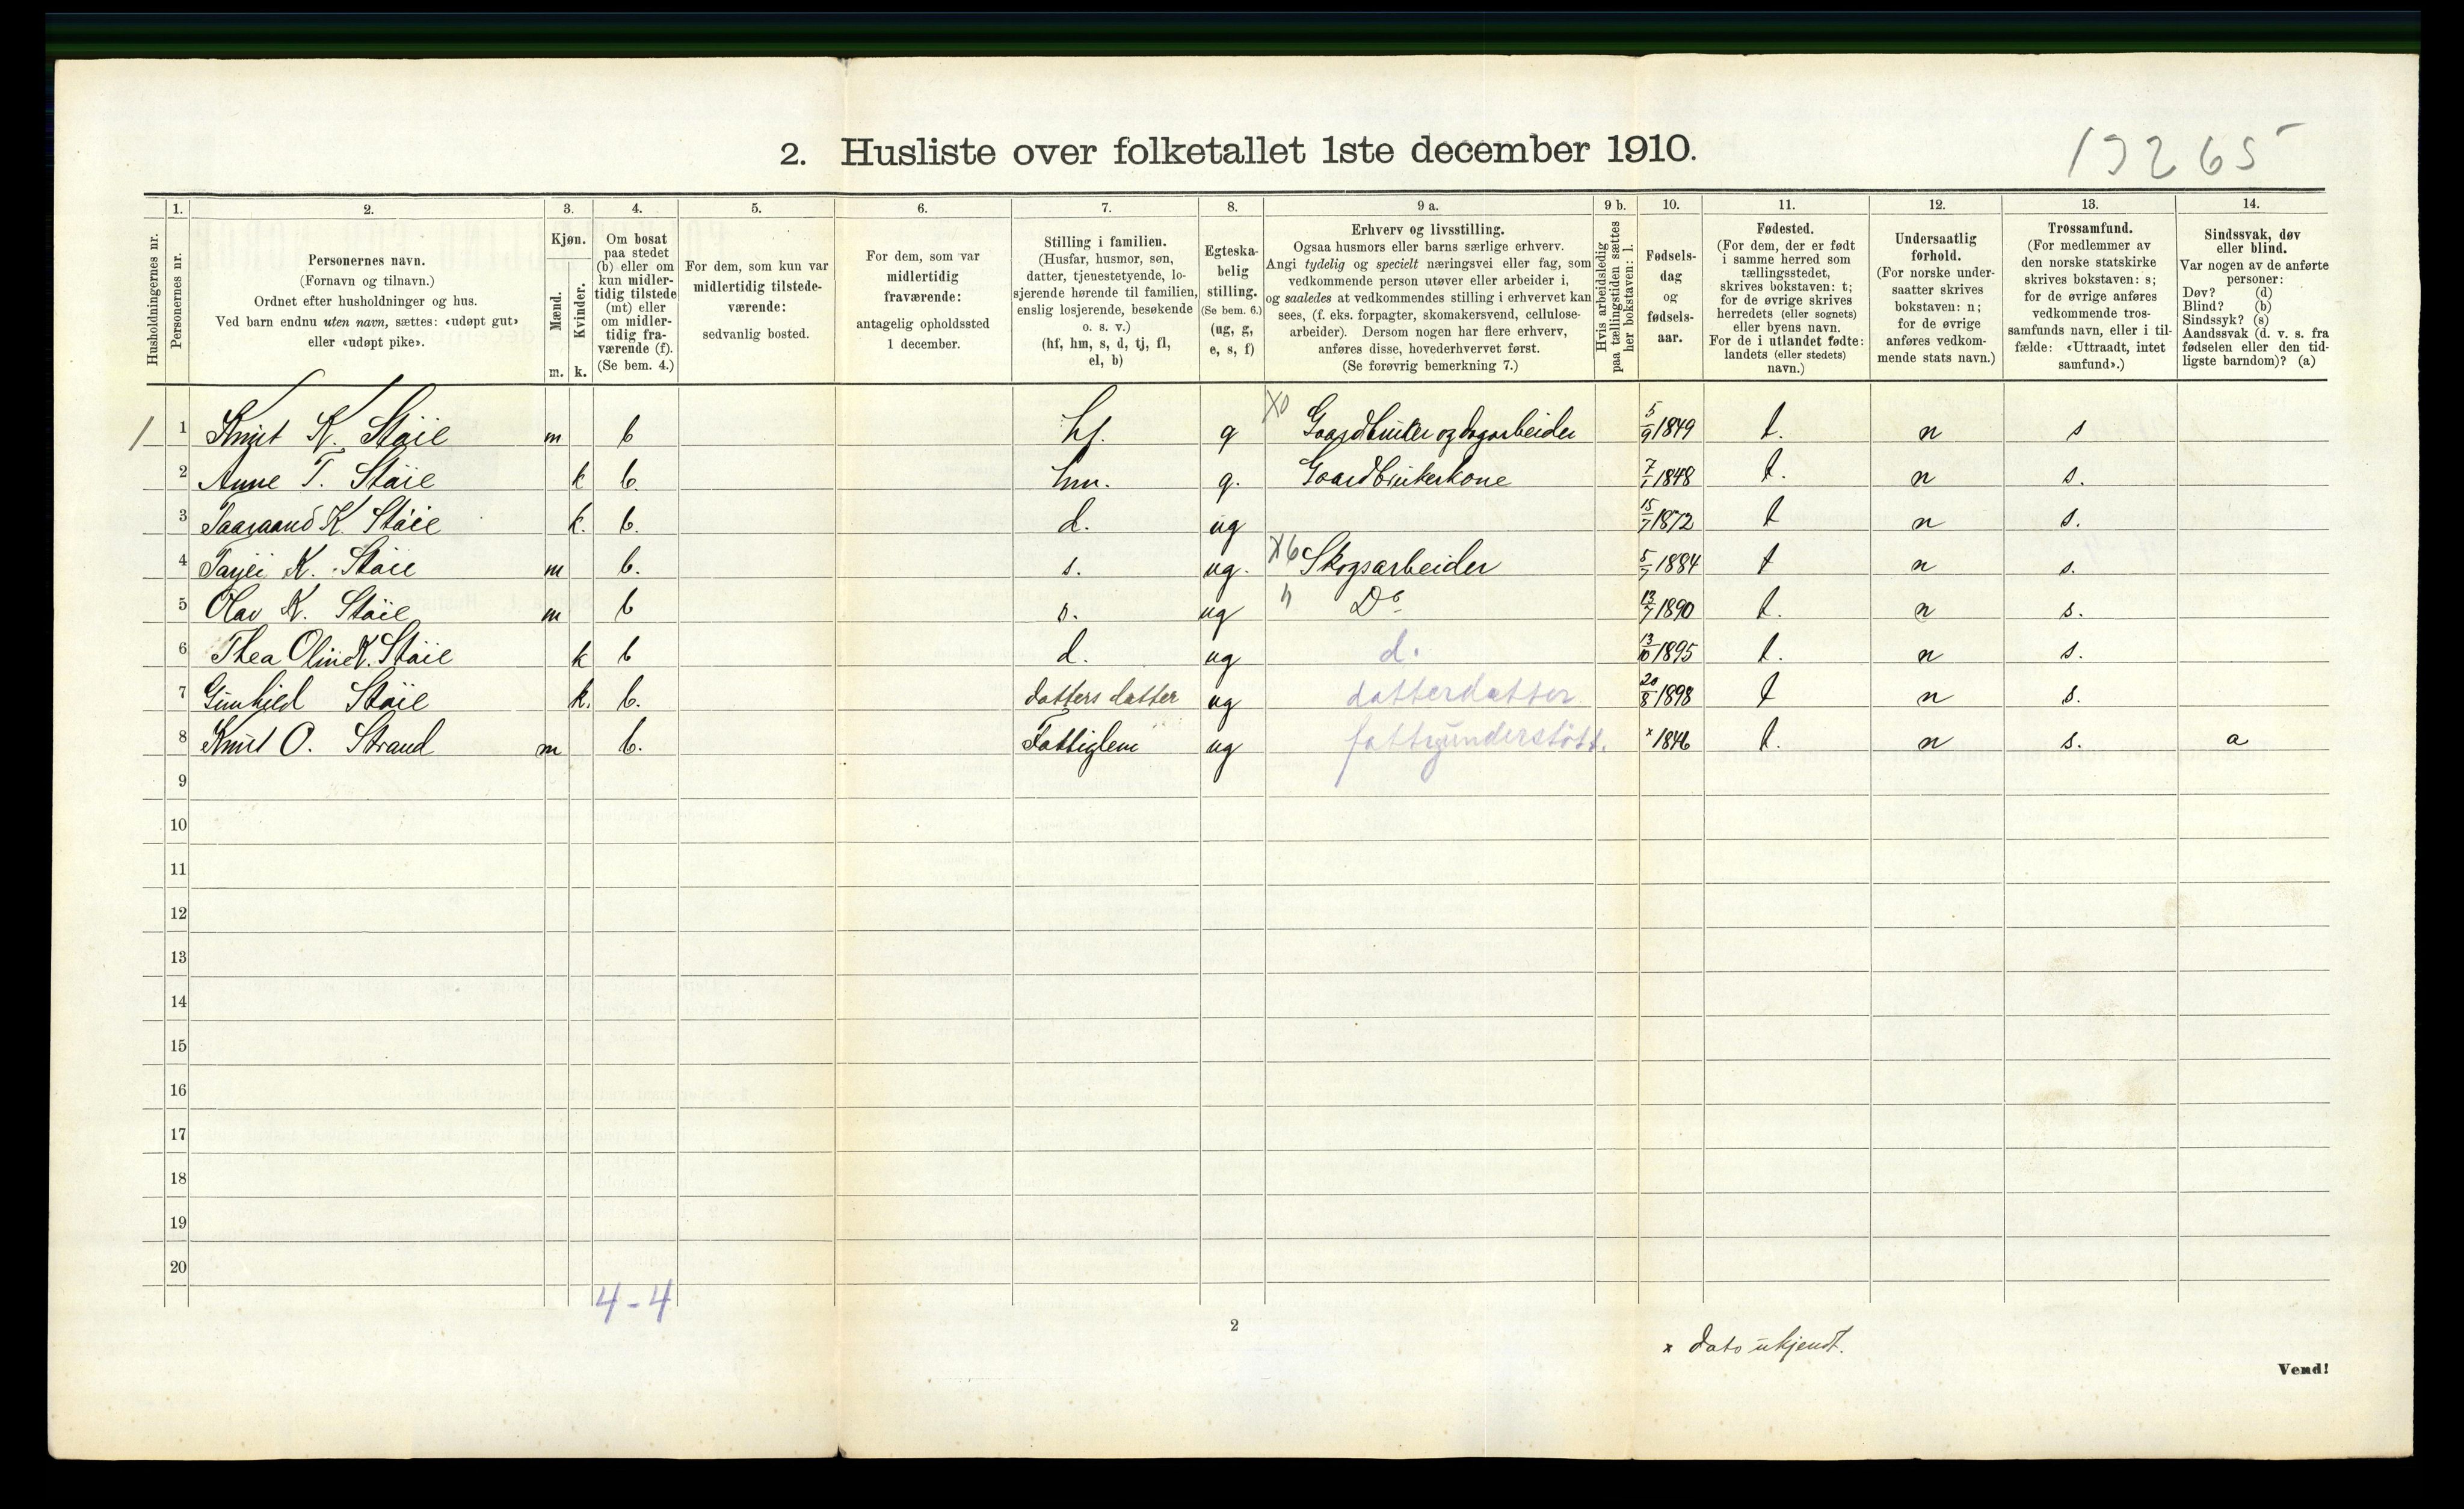 2. Husliste over folketallet 1ste december 1910.
13265
1. 2. 3. 4. 5. 6. 7. 8. 9 a. 9 b. 10. 11. 12. 13. 14.
Husholdningernes nr.
Personernes nr.
Personernes navn.
(Fornavn og tilnavn.)
Ordnet efter husholdninger og hus.
Ved barn endnu uten navn, sættes: «udøpt gut»
eller «udøpt pike».
Kjøn.
Mænd.
m.
Kvinder.
k.
Om bosat
paa stedet
(b) eller om
kun midler-
tidig tilstede
(mt) eller
om midler-
tidig fra-
værende (f).
(Se bem. 4.)
For dem, som kun var
midlertidig tilstede-
værende:
sedvanlig bosted.
For dem, som var
midlertidig
fraværende:
antagelig opholdssted
1 december.
Stilling i familien.
(Husfar, husmor, søn,
datter, tjenestetyende, lo-
sjerende hørende til familien,
enslig losjerende, besøkende
o. s. v.)
(hf, hm, s, d, tj, fl,
el, b)
Egteska-
belig
stilling.
(Se bem. 6.)
(ug, g,
e, s, f)
Erhverv og livsstilling.
Ogsaa husmors eller barns særlige erhverv.
Angi tydelig og specielt næringsvei eller fag, som
vedkommende person utøver eller arbeider i,
og saaledes at vedkommendes stilling i erhvervet kan
sees, (f. eks. forpagter, skomakersvend, cellulose-
arbeider). Dersom nogen har flere erhverv,
anføres disse, hovederhvervet først.
(Se forøvrig bemerkning 7.)
Hvis arbeidsledig
paa tællingstiden sættes
her bokstaven: l.
Fødsels-
dag
og
fødsels-
aar.
Fødested.
(For dem, der er født
i samme herred som
tællingsstedet,
skrives bokstaven: t;
for de øvrige skrives
herredets (eller sognets)
eller byens navn.
For de i utlandet fødte:
landets (eller stedets)
navn.)
Undersaatlig
forhold.
(For norske under-
saatter skrives
bokstaven: n;
for de øvrige
anføres vedkom-
mende stats navn.)
Trossamfund.
(For medlemmer av
den norske statskirke
skrives bokstaven: s;
for de øvrige anføres
vedkommende tros-
samfunds navn, eller i til-
fælde: «Uttraadt, intet
samfund».)
Sindssvak, døv
eller blind.
Var nogen av de anførte
personer:
Døv? (d)
Blind? (b)
Sindssyk? (s)
Aandssvak (d. v. s. fra
fødselen eller den tid-
ligste barndom)? (a)
1 1 Knut K. Støie m b hf. g X0 Gaardbruker og dagarbeider 5/9 1849 t. n s
2 Anne T. Støie k b. hm. g. Gaardbrukerkone 7/1 1848 t. n s.
3 Taaraand K. Støie k. b. d. ug 15/7 1872 t n s.
4 Tarjei K. Støie m b. s. ug. X6 Skogsarbeider 5/7 1884 t n s.
5 Olav K. Støie m b s. ug " Do 13/7 1890 t. n s.
6 Thea Oline K. Støie k b d. ug d. 13/10 1895 t. n s.
7 Gunhild Støie k. b. datters datter ug datterdatter 20/8 1898 t n s.
8 Knut O. Strand m b. Fattiglem ug fattigunderstøtt. x 1846 t. n s. a
9
10
11
12
13
14
15
16
17
18
19
20
4-4
2
x dato ukjendt.
Vend!